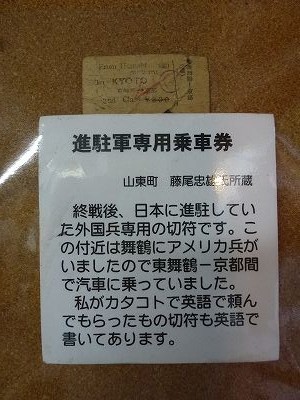 to KYOTO
2nd Class
進駐軍専用乗車券
山東町　藤尾忠雄氏所蔵
　終戦後、日本に進駐してい
た外国兵専用の切符です。こ
の付近は舞鶴にアメリカ兵が
いましたので東舞鶴－京都間
で汽車に乗っていました。
　私がカタコトで英語で頼ん
でもらったもの切符も英語で
書いてあります。